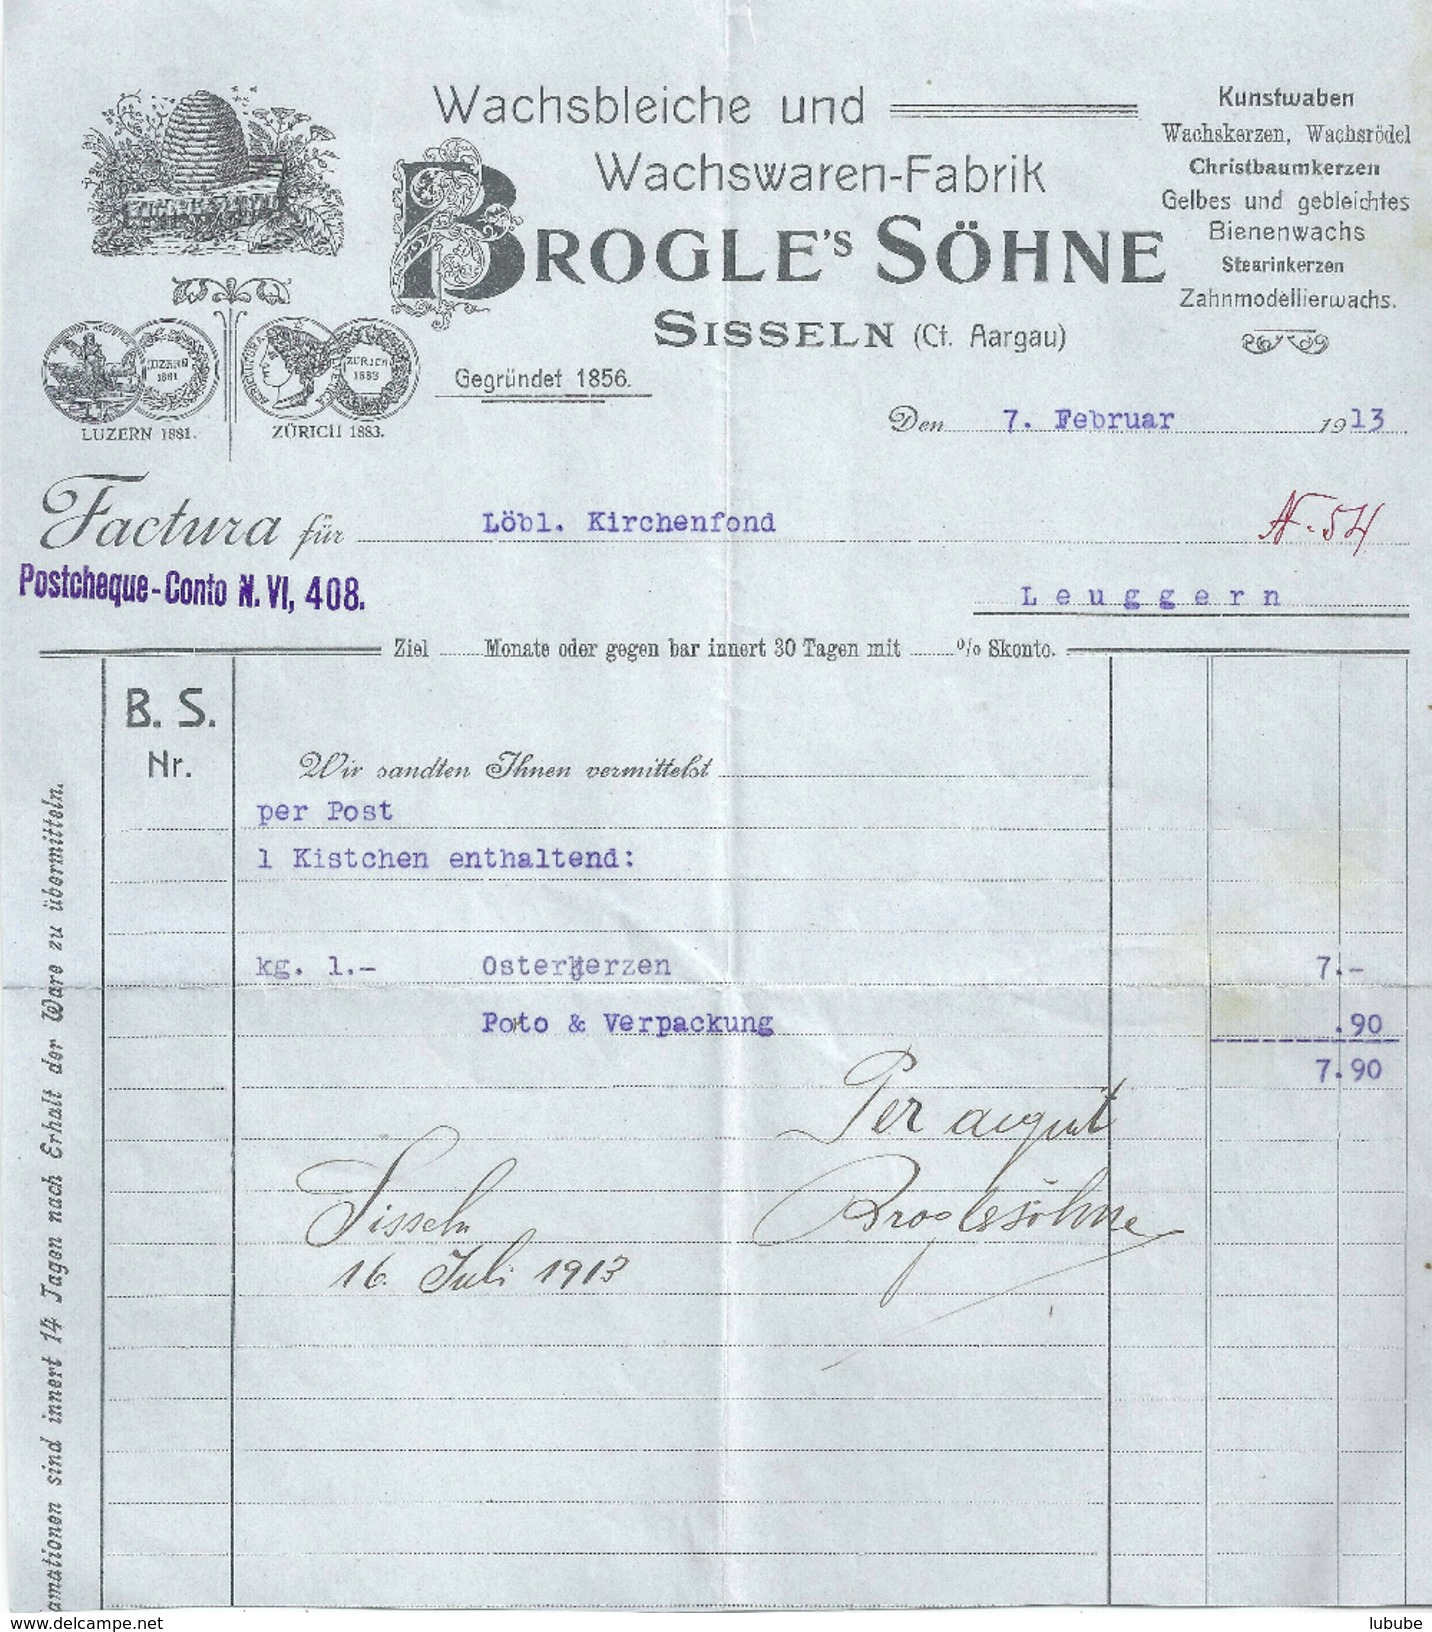 Wachsbleiche und
Wachswaren-Fabrik
BROGLE's SÖHNE
SISSELN (Ct. Aargau)
Gegründet 1856.
Kunstwaben
Wachskerzen, Wachsrödel
Christbaumkerzen
Gelbes und gebleichtes
Bienenwachs
Stearinkerzen
Zahnmodellierwachs.
LUZERN 1881
ZÜRICH 1883
LUZERN 1881.
ZÜRICH 1883.
Den 7. Februar 1913
Factura für Löbl. Kirchenfond
N. 54
Postcheque-Conto N. VI, 408.
Leuggern
Ziel Monate oder gegen bar innert 30 Tagen mit % Skonto.
B. S.
Nr.
Wir sandten Ihnen vermittelst
per Post
1 Kistchen enthaltend:
kg. 1.- Osterkerzen 7.-
Poto & Verpackung .90
7.90
Per acquit
Sisseln
Broglesöhne
16. Juli 1913
amationen sind innert 14 Tagen nach Erhalt der Ware zu übermitteln.
www.delcampe.net
lubube